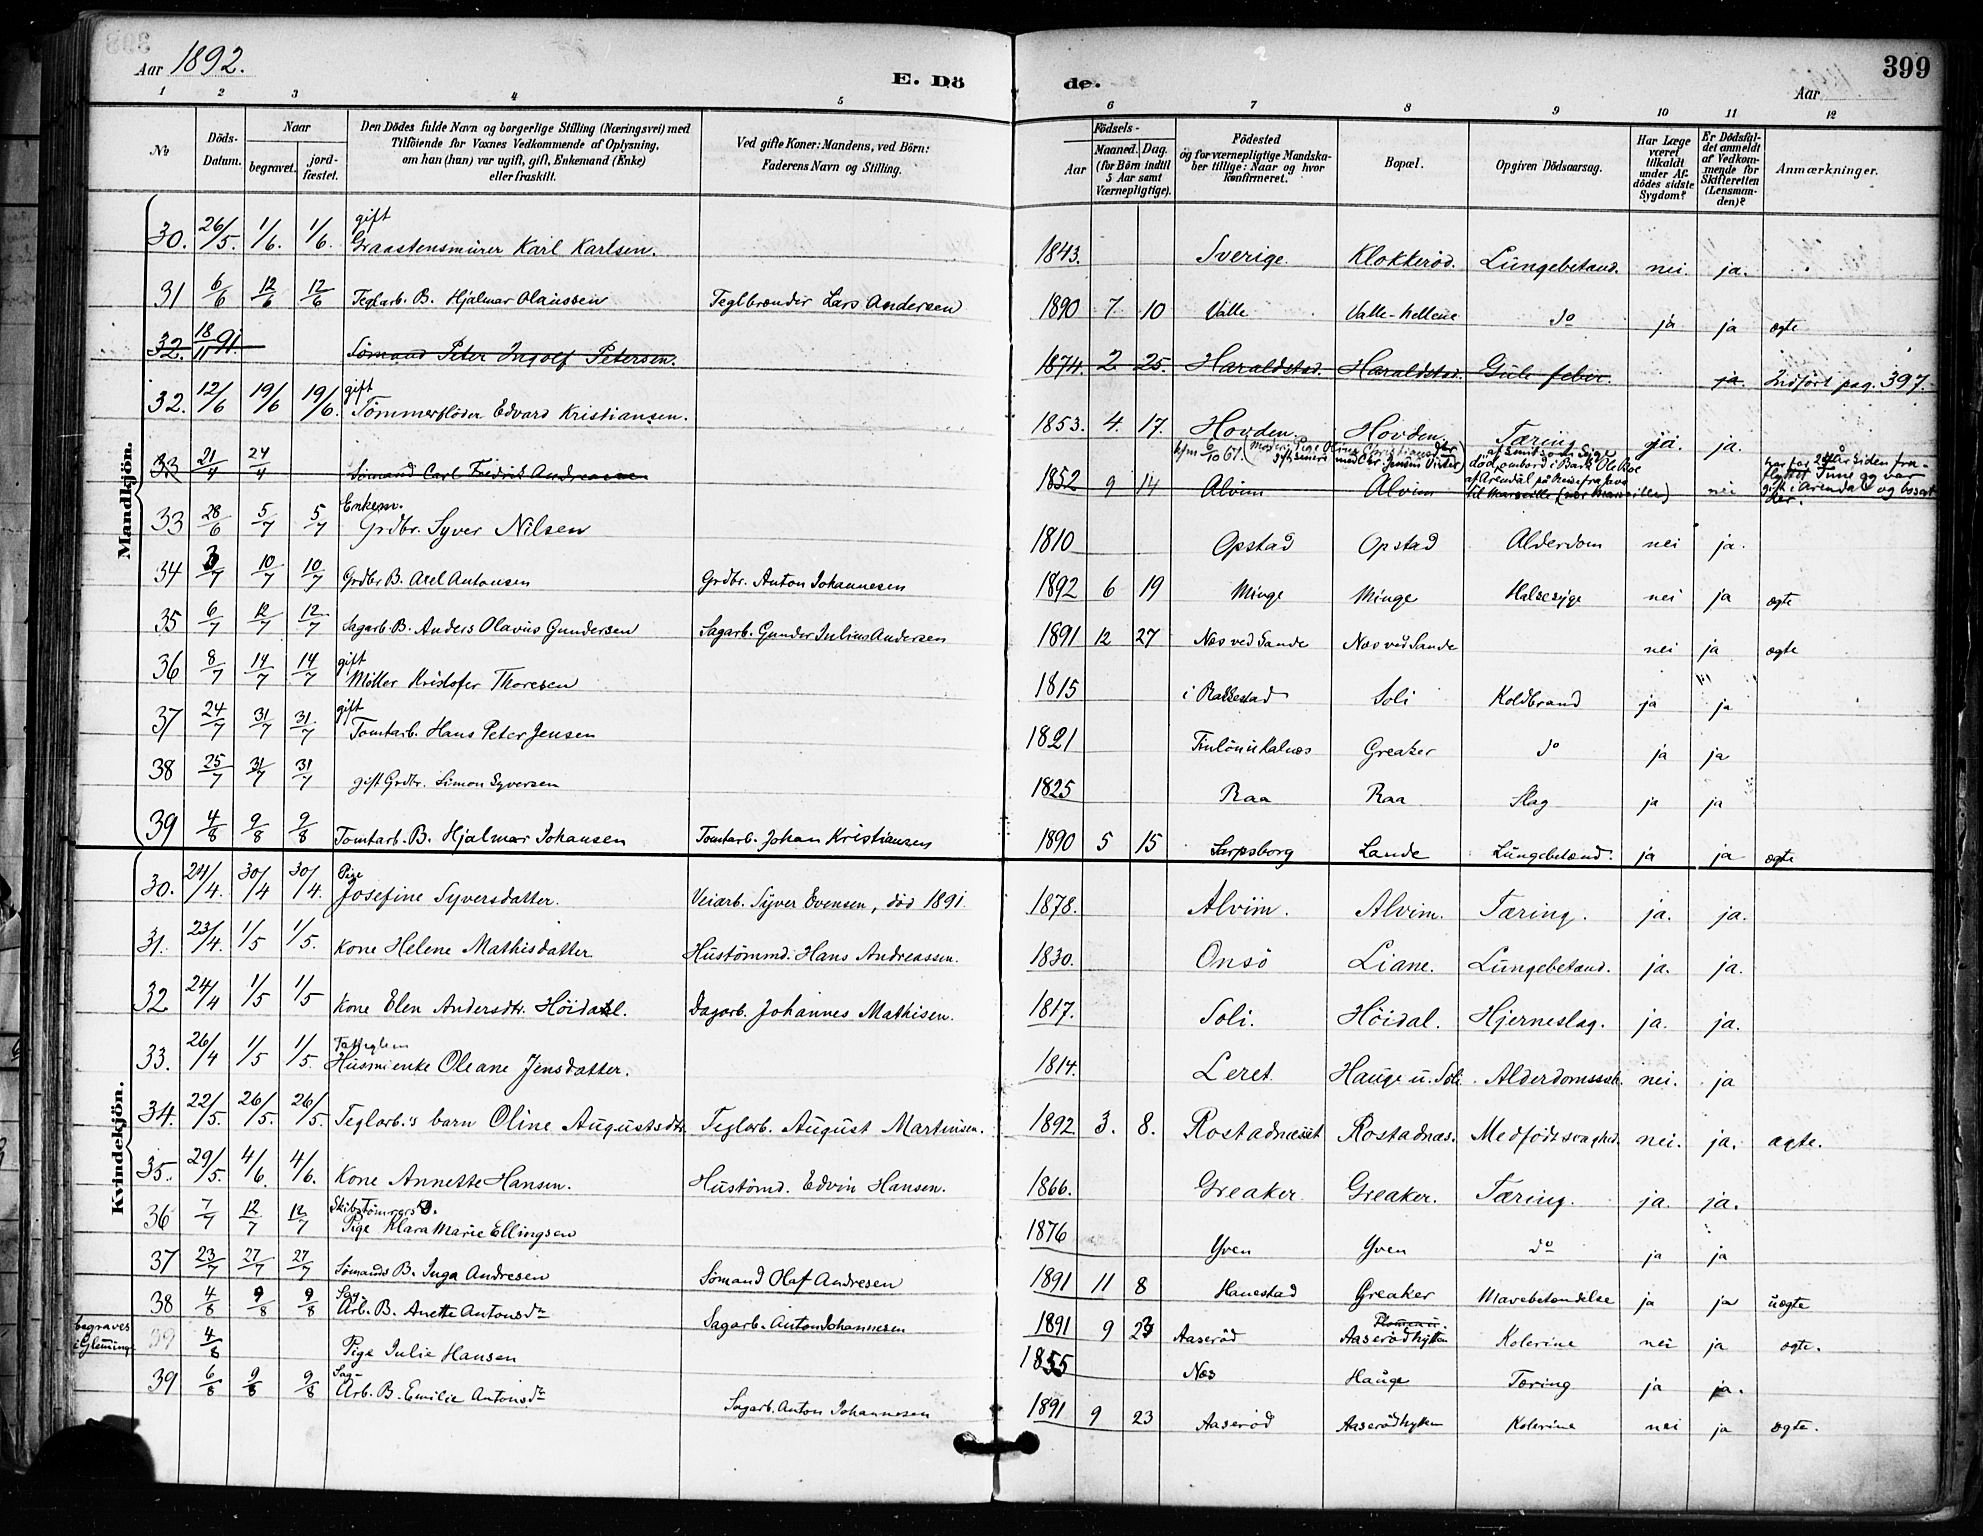 Aar 1892.
E. Dö
de.
Aar
399
1 2 3 4 5 6 7 8 9 10 11 12
No
Döds-Datum.
Naar
begravet.
jordfæstet.
Den Dödes fulde Navn og borgerlige Stilling (Næringsvei) med
Tilföiende for Voxnes Vedkommende af Oplysning,
om han (hun) var ugift, gift, Enkemand (Enke)
eller fraskilt.
Ved gifte Koner: Mandens, ved Börn:
Faderens Navn og Stilling.
Födsels-
Aar
Maaned. Dag.
(for Börn indtil
5 Aar samt
Værnepligtige).
Födested
og for værnepligtige Mandska-
ber tillige: Naar og hvor
konfirmeret.
Bopæl.
Opgiven Dödsaarsag.
Har Læge
været
tilkaldt
under Af-
dödes sidste
Sygdom?
Er Dödsfal-
det anmeldt
af Vedkom-
mende for
Skifteretten
(Lensman-
den)?
Anmærkninger.
Mandkjön.
30. 26/5. 1/6. 1/6. gift Graastensmürer Karl Karlsen. 1843. Sverige Klokkeröd. Lüngebetænd. nei ja.
31 6/6 12/6 12/6 Teglarb. B. Hjalmar Olaussen Teglbrænder Lars Andersen 1890 7 10 Valle Valle-hellene do ja ja ægte
32. 18/11 91. Sömand Peter Ingolf Petersen. 1874. 2 25. Haraldstad. Haraldstad. Gule feber. ja Indfört pag. 397.
32. 12/6 19/6 19/6. gift Tömmerflöder Edvard Kristiansen. 1853. 4. 17. Hovden. Hovden. Tæring ja. ja.
33 21/4 24/4 Sömand Carl Fredrik Andreasen 1852 9 14 Alvim Alvim
död ombord i Bark Ole Boe
af Arendal paa Reise fra Java
til Marseille nei
33 28/6 5/7 5/7 Enkem. Grdbr. Syver Nilsen 1810 Opstad Opstad Alderdom nei ja.
34 3/7 10/7 10/7 Grdbr B. Axel Antonsen Grdbr. Anton Johannesen 1892 6 19 Minge Minge Halsesyge nei ja ægte
35 6/7 12/7 12/7 Sagarb B. Anders Olavüs Gundersen Sagarb. Gunder Julius Andersen 1891 12 27 Næs ved Sande Næs ved Sande nei ja ægte
36 8/7 14/7 14/7 gift Möller Kristofer Thoresen 1815 i Rakkestad Soli Koldbrand ja ja
37 24/7 31/7 31/7 gift Tomtarb. Hans Peter Jensen 1821 Greaker do ja ja
38 25/7 31/7 31/7 gift Grdbr. Simon Syversen 1825 Raa Raa Slag ja ja
39 4/8 9/8 9/8 Tomtarb. B. Hjalmar Johansen Tomtarb. Johan Kristiansen 1890 5 15 Sarpsborg Lande Lüngebetænd. ja ja ægte
Kvindekjön.
30. 24/4. 30/4 30/4. Pige Josefine Syversdatter. Veiarb. Syver Evensen, död 1891. 1878. Alvim. Alvim. Tæring. ja. ja.
31. 23/4. 1/5 1/5. Kone Helene Mathisdatter Hustömmd. Hans Andreassen. 1830. Onsö Liane. Lüngebetænd. ja. ja.
32 24/4 1/5 1/5 Kone Elen Andersdtr. Höidahl. Dagarb. Johannes Mathisen. 1817. Soli. Höidal. Hjerneslag. ja. ja.
33. 26/4 1/5 1/5. Husmienke Oleane Jensdatter. 1814. Leret Hauge u. Soli nei. ja
34. 22/5. 26/5. 26/5. Teglarb.s barn Oline Augustsdtr. Teglarb. August Martinsen. 1892 3. 8. Rostadnæsset Rostadnæs. Medfödt svaghed. nei. ja. ægte.
35. 29/5. 4/6. 4/6. Kone Annette Hansen. Hustömd. Edvin Hansen. 1866. Greaker Greaker. Tæring. ja. ja.
36 7/7 12/7 12/7 Skibstömrers D. Pige Klara Marie Ellingsen 1876 Yven Yven do ja ja
37 23/7 27/7 27/7 Sömands B. Inga Andresen Sömand Olaf Andresen 1891 11 8 Hanestad Greaker Mavebetændelse ja ja üægte
38 4/8 9/8 9/8 Sag-Arb. B. Anette Antonsdtr Sagarb. Anton Johannesen 1891 9 23 Aaseröd Aaserödhytten Kolerine nei ja ægte.
begraves i Glemminge 39 4/8 Pige Julie Hansen 1855 Næs Hauge Tæring ja ja.
39 6/8 9/8 9/8 Sag-Arb. B. Emilie Antonsdtr Sagarb. Anton Johannesen 1891 9 23 Aaseröd Aaserödhytten Kolerine nei ja ægte.